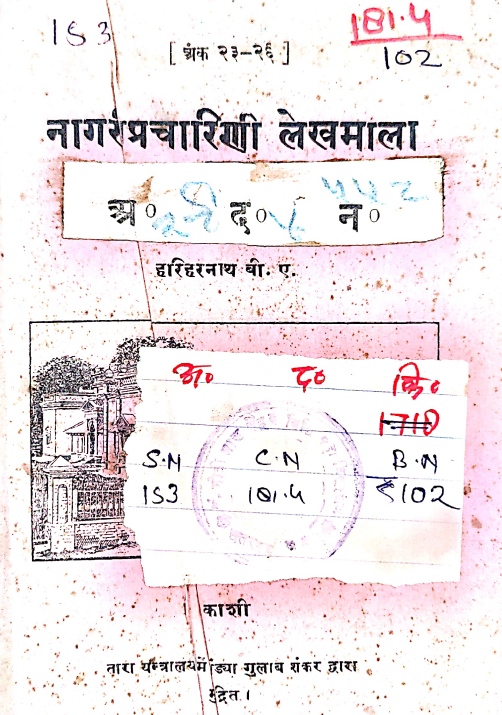 153
181.4
[ अंक २३-२६ ]
102
नागरीप्रचारिणी लेखमाला
अ० द० न०
हरिहरनाथ बी. ए.
अ० द० कि०
1710
S.N C.N B.N
153 181.4 102
काशी
तारा यन्त्रालयमें गुलाब शंकर द्वारा
मुद्रित।